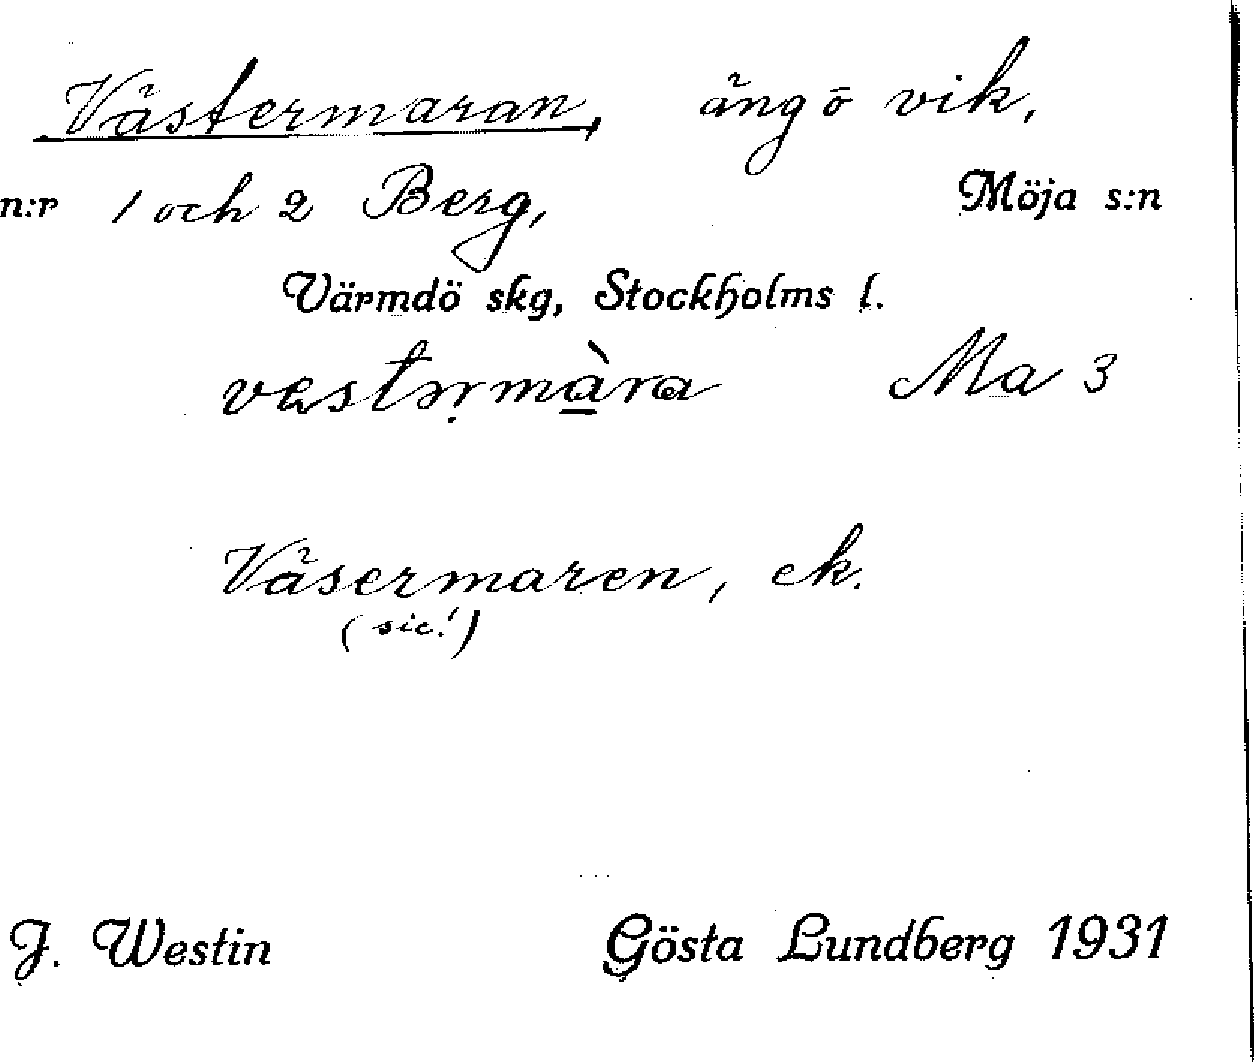 Västermaran, äng ō vik,
n:r 1 och 2 Berg, Möja s:n
Värmdö skg, Stockholms l.
västərmàra Ma 3
Väsermaren, ek.
(sic!)
J. Westin Gösta Lundberg 1931